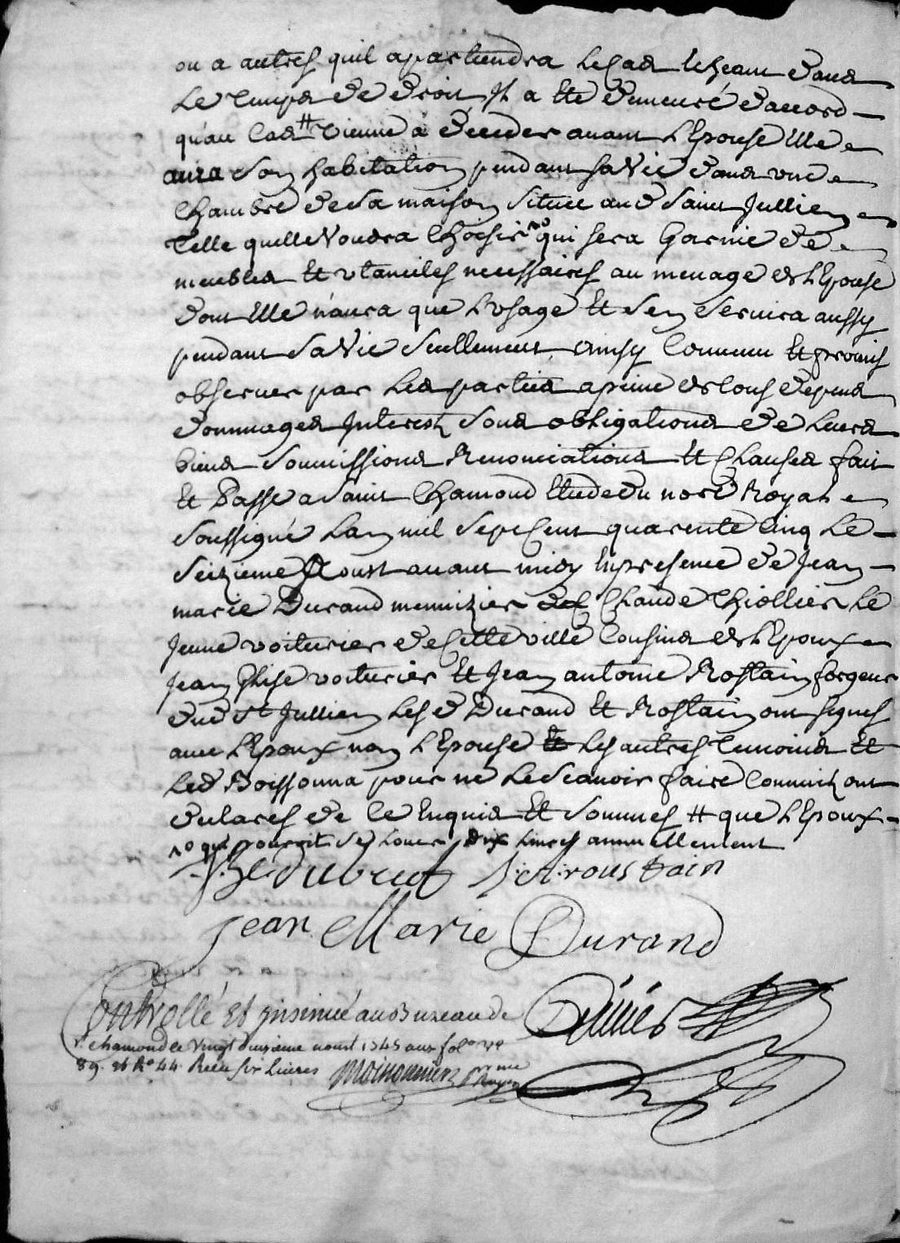 ou a autres quil apartiendra le cas Echeant dans
le temps de droit Il a ete demeuré daccord
qu'au cas # Vienne a deceder avant l'Epouse Elle
aura son habitation pendant sa Vie dans une
Chambre de sa maison située aud Saint Jullien
Telle quelle Voudra Choisir ro qui sera Garnie de
meubles et Utanciles necessaires au menage de l'Epouse
dont Elle n'aura que l'usage et s'en servira aussy
pendant sa Vie seullement, ainsy Convenu et promis
observer par les parties a peine de tous depens
dommages Interests sous obligations de leurs
biens soumissions Renonciations et Clauses fait
et Passé a Saint Chamond Etude du nore Royal
soussigné l'an mil sept Cent quarente Cinq le
seizieme Aoust avant midy En presence de Jean
marie Durand mennizier de Claude Thiollier le
Jeune voiturier de Cette ville Cousins de l'Epoux
Jean Glise voiturier et Jean antoine Rostain forgeur
dud St Jullien les d Durand et Rostain ont signés
avec l'Epoux non l'Epouse et les autres Temoins et
led Boissonna pour ne le Scavoir faire
de ce Enquis et sommés # que l'Epoux
ro qui pourroit se louer dix livres annuellement
J A roustain
Jean Marie Durand
Controllé et insinué au Bureau de
St chamond le Vingt aoust 1745 aux fol
89. et Ro 44. Recu six Livres